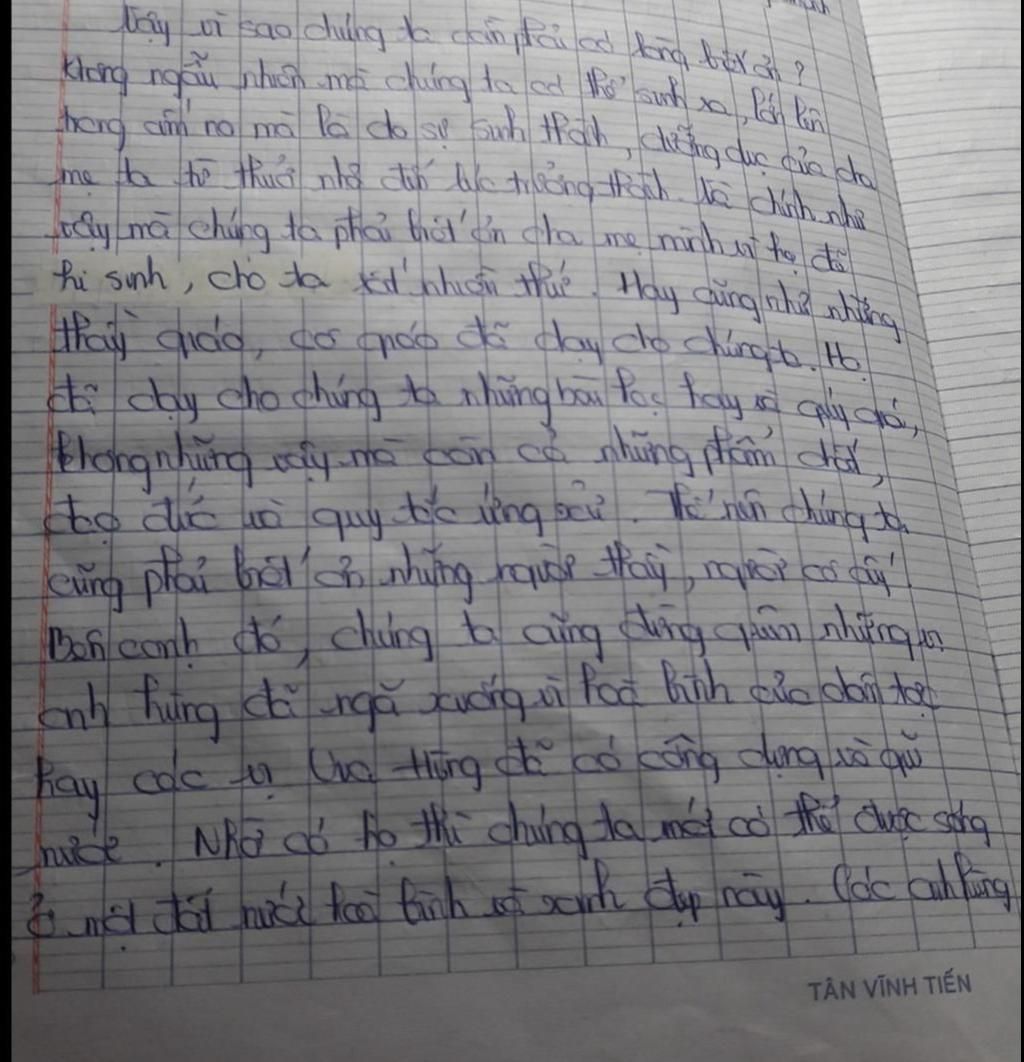 Vậy vì sao chúng ta cần phải có lòng biết ơn?
Không ngẫu nhiên mà chúng ta có thể sinh ra, lớn lên
trong ấm no mà là do sự sinh thành, dưỡng dục của cha
mẹ ta từ thuở nhỏ đến lúc trưởng thành. Và chính như
vậy mà chúng ta phải biết ơn cha mẹ mình vì họ đã
hi sinh, cho ta rất nhiều thứ. Hay cũng như những
thầy giáo, cô giáo đã dạy cho chúng ta. Họ
đã dạy cho chúng ta những bài học hay và quý giá,
không những vậy mà còn cả những phẩm chất,
đạo đức và quy tắc ứng xử. Thế nên chúng ta
cũng phải biết ơn những người thầy, người cô ấy.
Bên cạnh đó, chúng ta cũng đừng quên những vị
anh hùng đã ngã xuống vì hoà bình của dân tộc
hay các vị Vua Hùng đã có công dựng và giữ
nước. Nhờ có họ thì chúng ta mới có thể được sống
ở một đất nước hoà bình và xanh đẹp này. Các anh hùng
TÂN VĨNH TIẾN